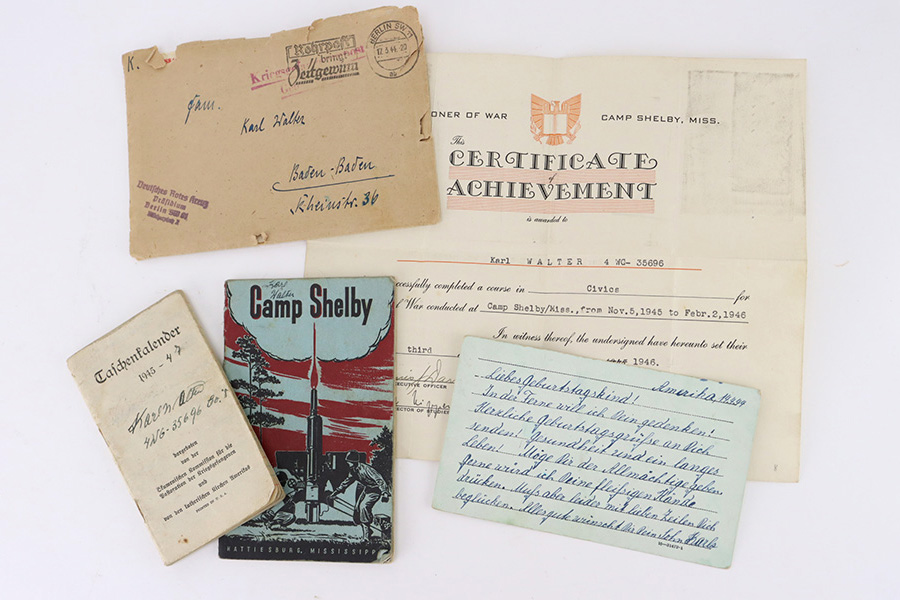 K.
Rohrpost
bringt
Zeitgewinn
BERLIN SW 11
12.5.44.-20
Fam.
Karl Walter
Baden-Baden
Rheinstr. 36
Deutsches Rotes Kreuz
Präsidium
Berlin SW 61
ONER OF WAR
CAMP SHELBY, MISS.
This
CERTIFICATE
of
ACHIEVEMENT
is awarded to
Karl WALTER 4 WG- 35696
ccessfully completed a course in Civics for
War conducted at Camp Shelby/Miss., from Nov.5,1945 to Febr.2,1946
In witness thereof, the undersigned have hereunto set their
third
1946.
EXECUTIVE OFFICER
Taschenkalender
1945-47
Karl Walter
4WG-35696 Co. 7
dargeboten
von der
Ökumenischen Kommission für die
Pastoration der Kriegsgefangenen
und
von den lutherischen Kirchen Amerikas
Karl
Walter
Camp Shelby
HATTIESBURG, MISSISSIPPI
Amerika,
Liebes Geburtstagskind!
In der Ferne will ich Dein gedenken!
Herzliche Geburtstagsgrüße an Dich
senden! Gesundheit und ein langes
Leben! Möge Dir der Allmächtige geben.
Gerne würd ich Deine fleißigen Hände
drücken. Muß aber leider mit lieben Zeilen Dich
beglücken. Alles gute wünscht Dir Dein Sohn Karl